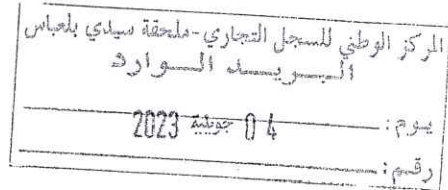 المركز الوطني للسجل التجاري - ملحقة سيدي بلعباس
البريد الوارد
يوم : 04 جويلية 2023
رقم :